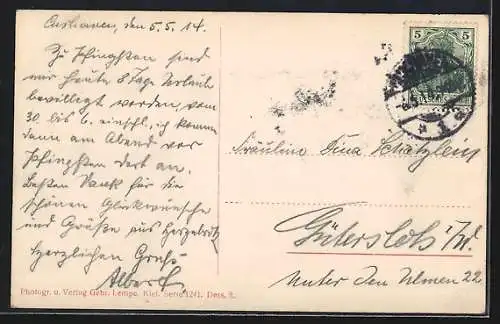 Cuxhaven, den 5.5.14.
Zu Pfingsten sind
mir heute 8 Tage Urlaub
bewilligt worden, vom
30. bis 6. einschl., ich komme
dann am Abend vor
Pfingsten dort an.
Besten Dank für die
schönen Glückwünsche
und Grüße aus
Herzlichen Gruß
Albert.
Photogr. u. Verlag Gebr. Lempe, Kiel. Serie 1241. Dess. 8.
5 5
Fräulein Tina Schätzlein
Gütersloh i/W.
Unter den Ulmen 22